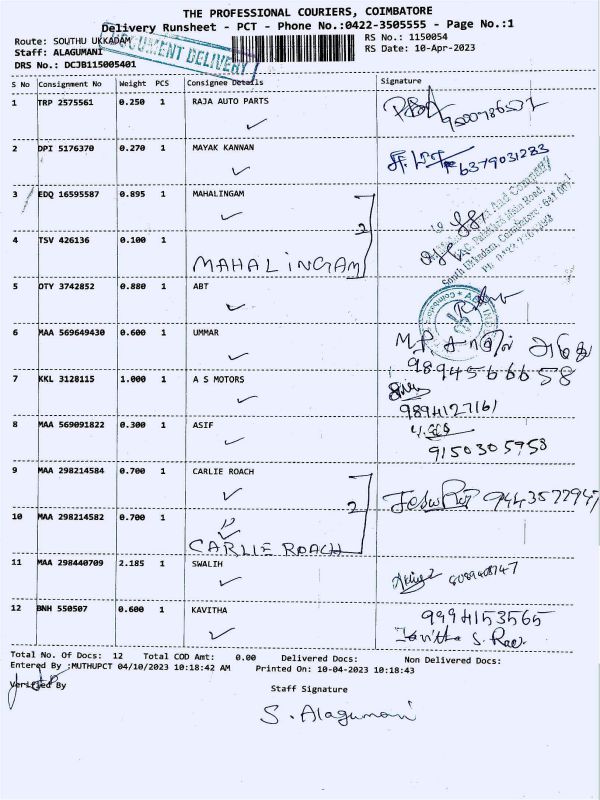 THE PROFESSIONAL COURIERS, COIMBATORE
Delivery Runsheet - PCT - Phone No.:0422-3505555 - Page No.:1
Route: SOUTHU UKKADAM
RS No.: 1150054
Staff: ALAGUMANI
RS Date: 10-Apr-2023
DRS No.: DCJB115005401
DOCUMENT DELIVERY
S No Consignment No Weight PCS Consignee Details Signature
1 TRP 2575561 0.250 1 RAJA AUTO PARTS
9500786537
2 DPI 5176370 0.270 1 MAYAK KANNAN
6379031283
3 EDQ 16595587 0.895 1 MAHALINGAM
2
4 TSV 426136 0.100 1
MAHALINGAM
5 OTY 3742852 0.880 1 ABT
6 MAA 569649430 0.600 1 UMMAR
9894566658
7 KKL 3128115 1.000 1 A S MOTORS
9894127161
8 MAA 569091822 0.300 1 ASIF
9150305958
9 MAA 298214584 0.700 1 CARLIE ROACH
2
10 MAA 298214582 0.700 1
CARLIE ROACH
11 MAA 298440709 2.185 1 SWALIH
12 BNH 550507 0.600 1 KAVITHA
9994153565
Kavitha S. Rao
Total No. Of Docs: 12 Total COD Amt: 0.00 Delivered Docs: Non Delivered Docs:
Entered By :MUTHUPCT 04/10/2023 10:18:42 AM Printed On: 10-04-2023 10:18:43
Verified By
Staff Signature
S. Alagumani